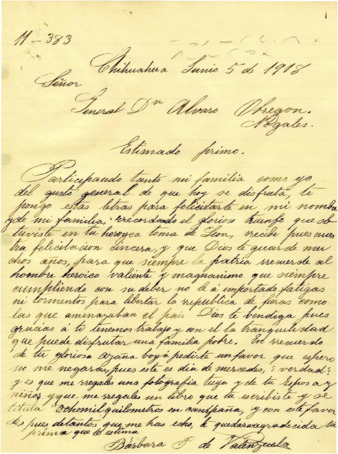 11-383
Chihuahua Junio 5 de 1918
Señor
General Dn Alvaro Obregon.
Nogales.
Estimado primo.
Participando tanto mi familia como yo
del gusto general de que hoy se disfruta, te
pongo estas letras para felicitarte en mi nombre
y de mi familia. recordando el glorioso triunfo que ob
tuviste en tu heroyca toma de Leon, recibe pues nues
tra felicitacion sincera, y que Dios te guarde mu
chos años, para que siempre la patria recuerde al
hombre heroico valiente y magnanimo que siempre
cumpliendo con su deber no le á importado fatigas
ni tormentos para libertar la republica de fieras como
las que amenazaban el pais Dios te bendiga pues
gracias á te tenemos trabajo y con el la tranquilidad
que puede disfrutar una familia pobre. En recuerdo
de tu gloriosa azaña boy á pedirte un favor que espero
no me negaras, pues este es dia de mercedes, ¿verdad?
y es que me regales una fotografia tuya y de tu esposa y
niños y que me regales un libro que tu escribiste y se
titula: Ochomil quilometros en campaña, y con este favor
des pues de tantos que me has echo, te quedara agradecida tu
prima que te estima
Bárbara F. de Valenzuela